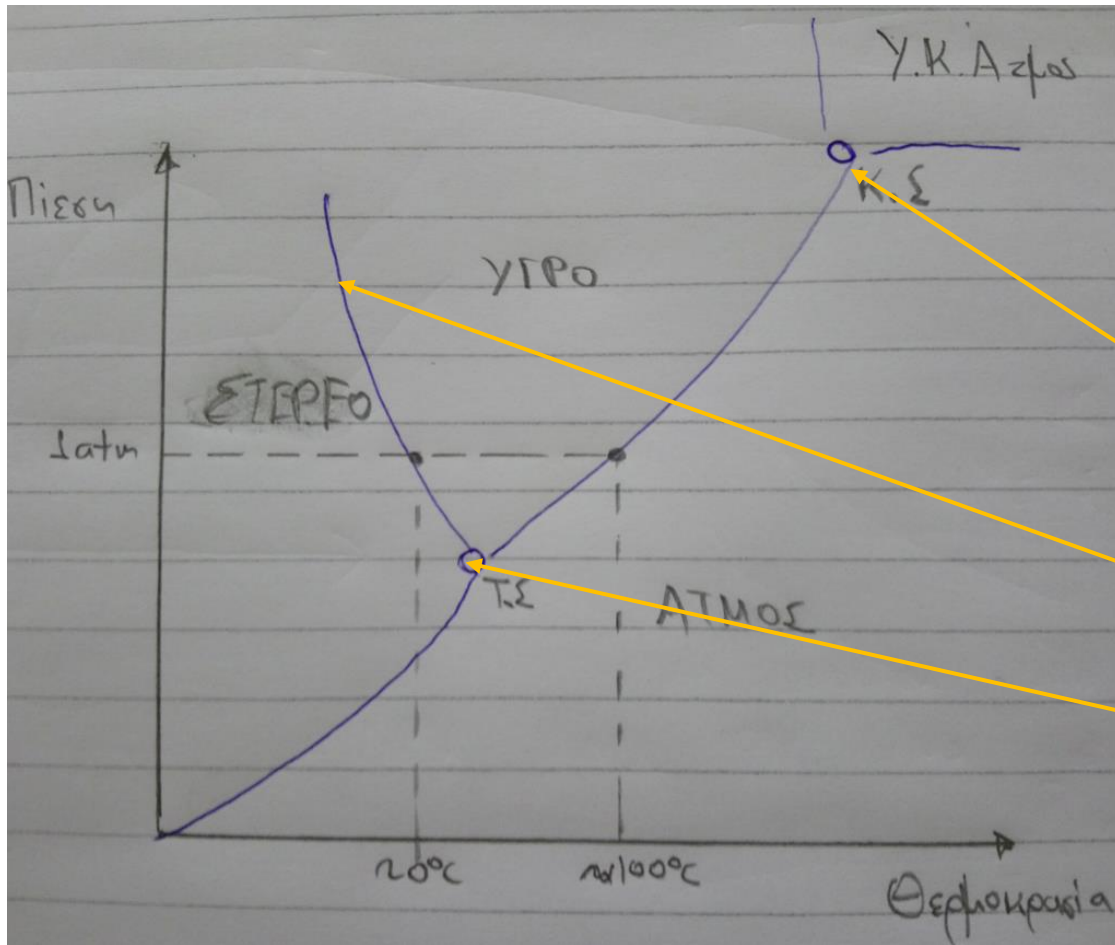 Υ.Κ.Ατμος
Πίεση
Κ.Σ
ΥΓΡΟ
ΣΤΕΡΕΟ
1atm
Τ.Σ
ΑΤΜΟΣ
~0°C
~100°C
Θερμοκρασία